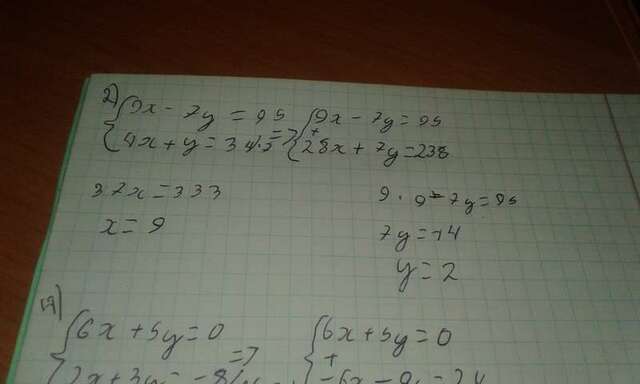 2)
9x - 7y = 95
4x + y = 34 |·7 =>
9x - 7y = 95
+
28x + 7y = 238
37x = 333
x = 9
9 · 9 - 7y = 95
7y = -14
y = 2
6x + 5y = 0
=>
6x + 5y = 0
+